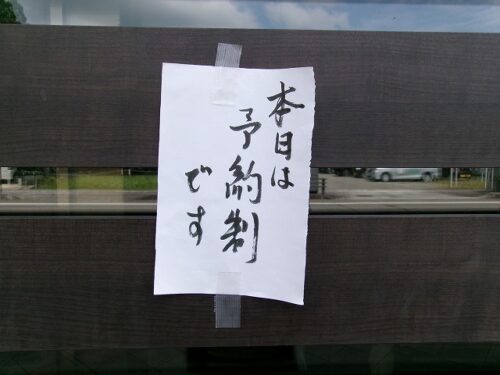 本日は
予約制
です